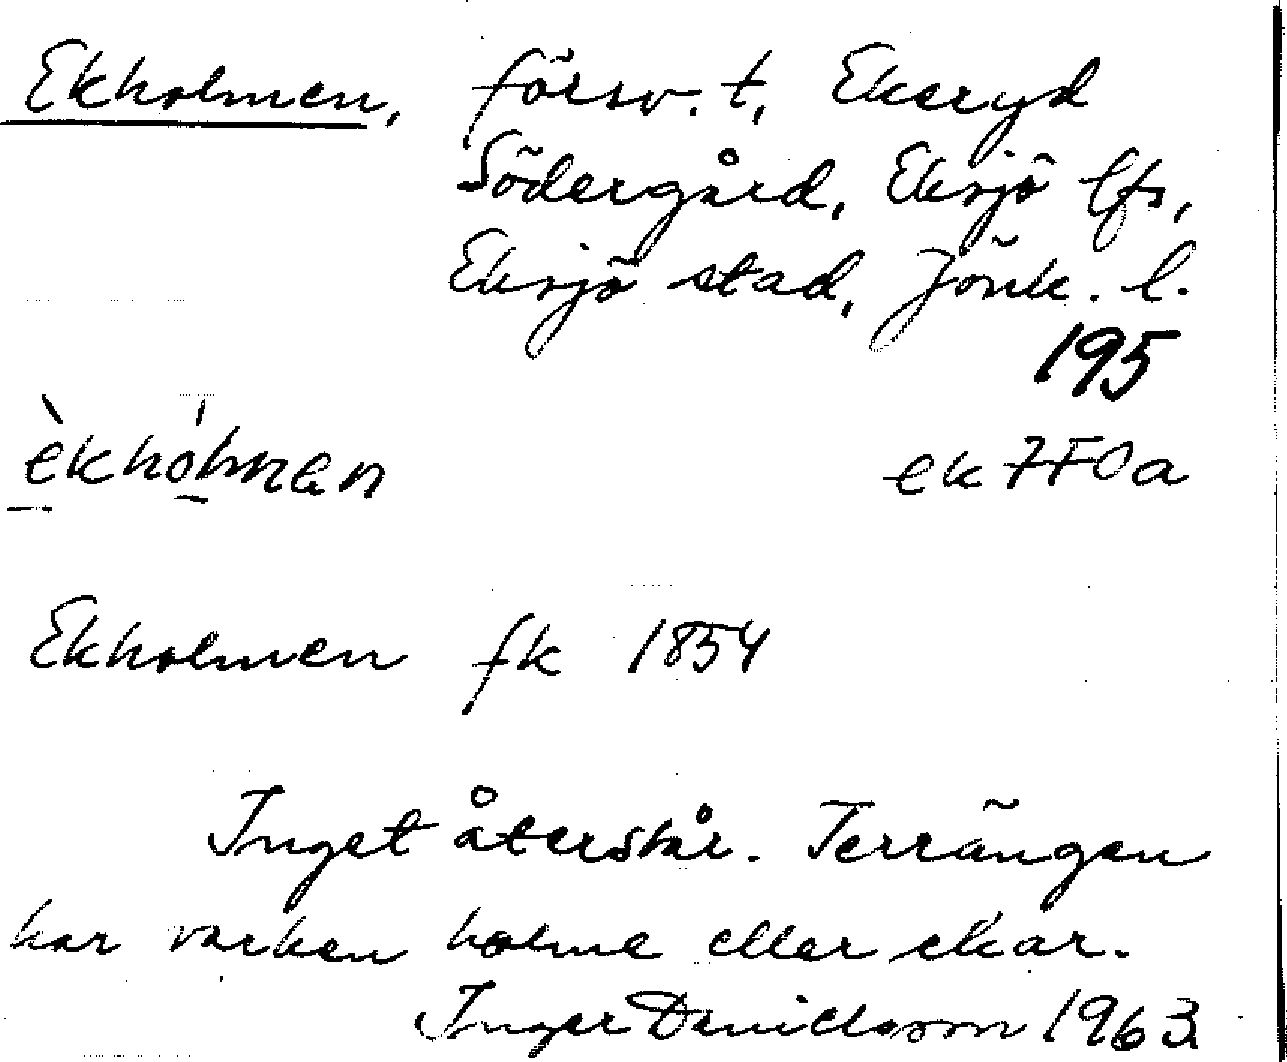 Ekholmen, försv. t. Ekeryd
Södergård, Eksjö lfs,
Eksjö stad, Jönk. l.
195
èkhólmən ek 7F0a
Ekholmen fk 1854
Inget återstår. Terrängen
har varken holme eller ekar.
Inger Davidsson 1963